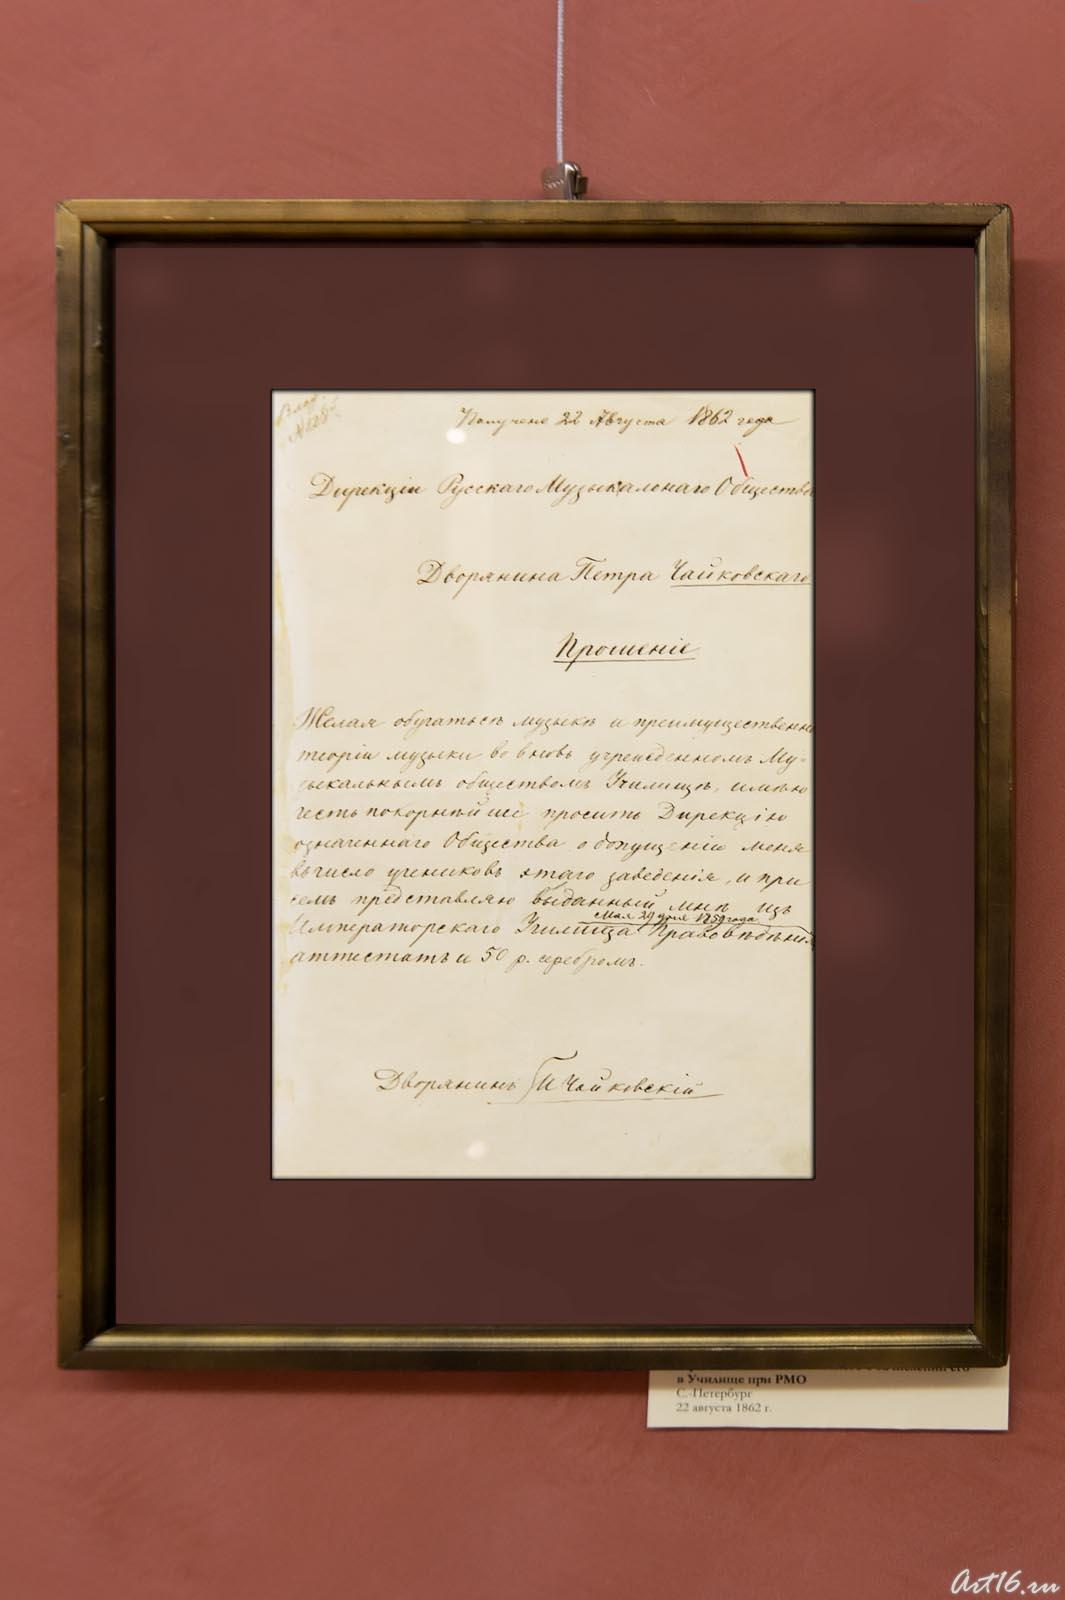 Получено 22 Августа 1862 года
Дирекціи Русскаго Музыкальнаго Общества
Дворянина Петра Чайковскаго
Прошеніе
Желая обучаться музыкѣ и преимущественно
теоріи музыки во вновь учрежденномъ Му-
зыкальнымъ обществомъ Училищѣ, имѣю
честь покорнѣйше просить Дирекцію
означеннаго Общества о допущеніи меня
въ число учениковъ этаго заведенія, и при
семъ представляю выданный мнѣ изъ
1859 года
Императорскаго Училища Правовѣдѣнія
аттестатъ и 50 р. серебромъ.
Дворянинъ П Чайковскій
в Училище при РМО
С.-Петербург
22 августа 1862 г.
Art16.ru